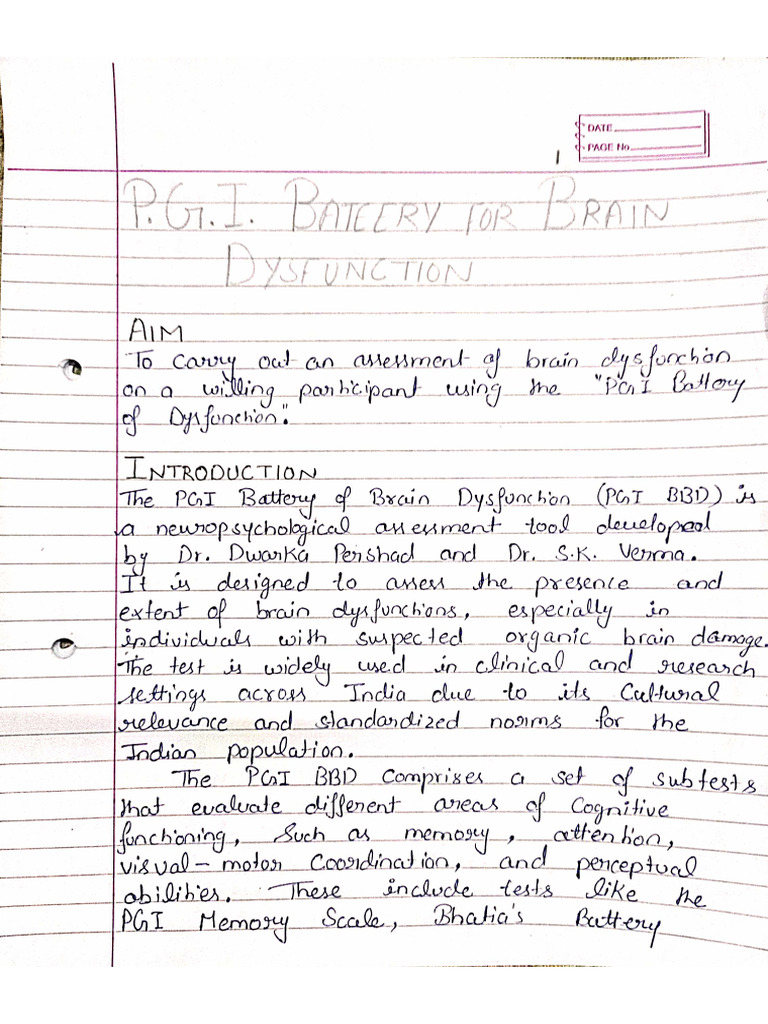 DATE
PAGE No.
1
P.G.I. BATEERY FOR BRAIN
DYSFUNCTION
AIM
To carry out an assessment of brain dysfunction
on a willing participant using the "PGI Battery
of Dysfunction".
INTRODUCTION
The PGI Battery of Brain Dysfunction (PGI BBD) is
a neuropsychological assessment tool developed
by Dr. Dwarka Pershad and Dr. S.K. Verma.
It is designed to assess the presence and
extent of brain dysfunctions, especially in
individuals with suspected organic brain damage.
The test is widely used in clinical and research
settings across India due to its Cultural
relevance and standardized norms for the
Indian population.
The PGI BBD Comprises a set of subtests
that evaluate different areas of Cognitive
functioning, Such as memory, attention,
visual-motor Coordination, and perceptual
abilities. These include tests like the
PGI Memory Scale, Bhatia's Battery